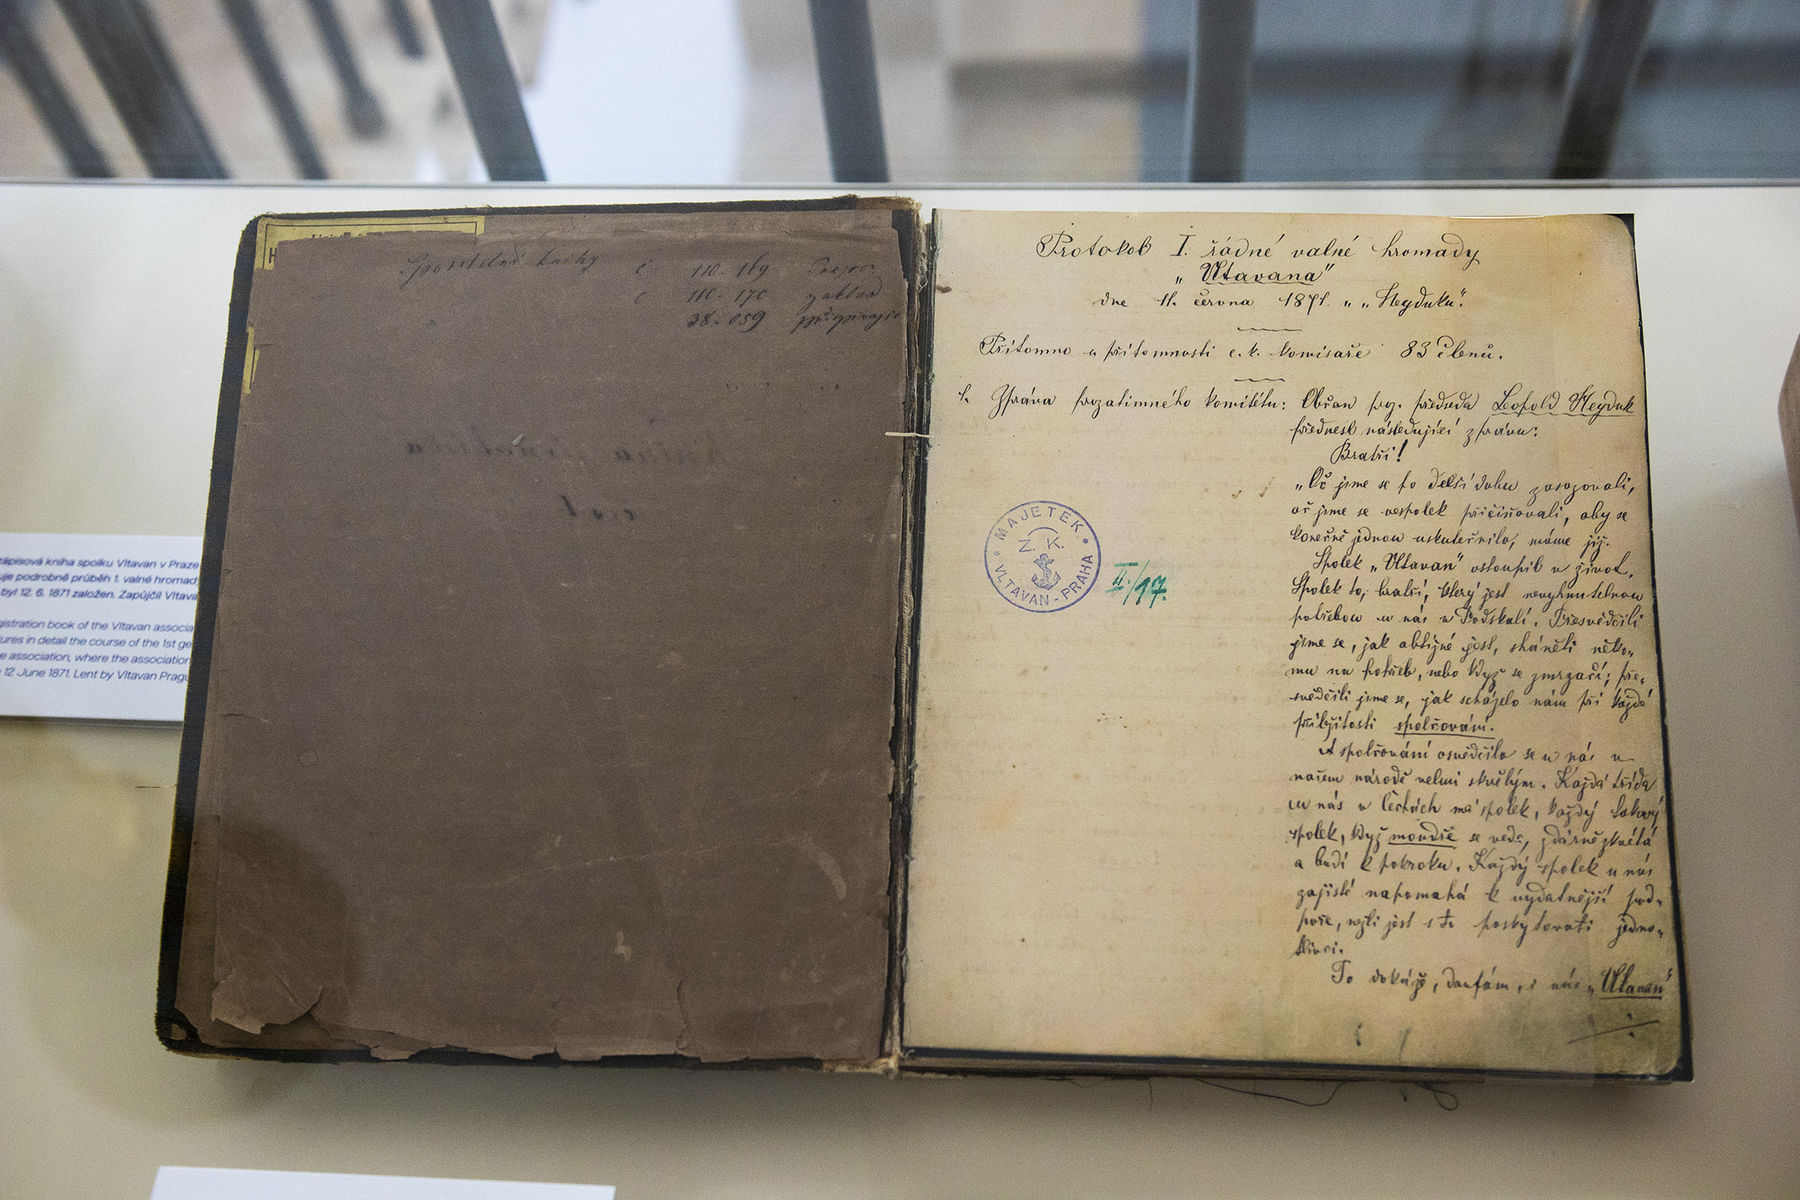 Spořitelní knihy č 110-169
č 110-170 základ
38-059
Protokol I. řádné valné hromady
„Vltavana"
dne 11. června 1871. u „Heyduků".
Přítomno u přítomnosti c. k. komisaře 83 členů.
1. Zpráva prozatimného komitétu: Občan proz. předseda Leopold Heyduk
přednesl následující zprávu:
Bratři!
„Oč jsme se po delší dobu zasazovali,
oč jsme se vespolek přičiňovali, aby se
konečně jednou uskutečnilo, máme již.
Spolek „Vltavan" vstoupil v život.
Spolek to, bratři, který jest nevyhnutelnou
potřebou u nás v Podskalí. Přesvědčili
jsme se, jak obtížné jest, sháněti něko-
mu na pohřeb, nebo když se zmrzačí; pře-
svědčili jsme se, jak scházelo nám při každé
příležitosti spolčování.
A spolčování osvědčilo se u nás v
našem národě velmi skvělým. Každá třída
u nás v Čechách má spolek, každý takový
spolek, když moudře se vede, zdárně zkvétá
a budí k pokroku. Každý spolek u nás
zajisté napomahá k vydatnější pod-
poře, nežli jest s to poskytovati jedno-
tlivci.
To dokáže, doufám, i nás „Vltavan"
MAJETEK
Z K
VLTAVAN - PRAHA
II./17.
zápisová kniha spolku Vltavan v Praze
uje podrobně průběh 1. valné hromad
byl 12. 6. 1871 založen. Zapůjčil Vltava
gistration book of the Vltavan associa
ures in detail the course of the 1st ge
e association, where the association
12 June 1871. Lent by Vltavan Pragu